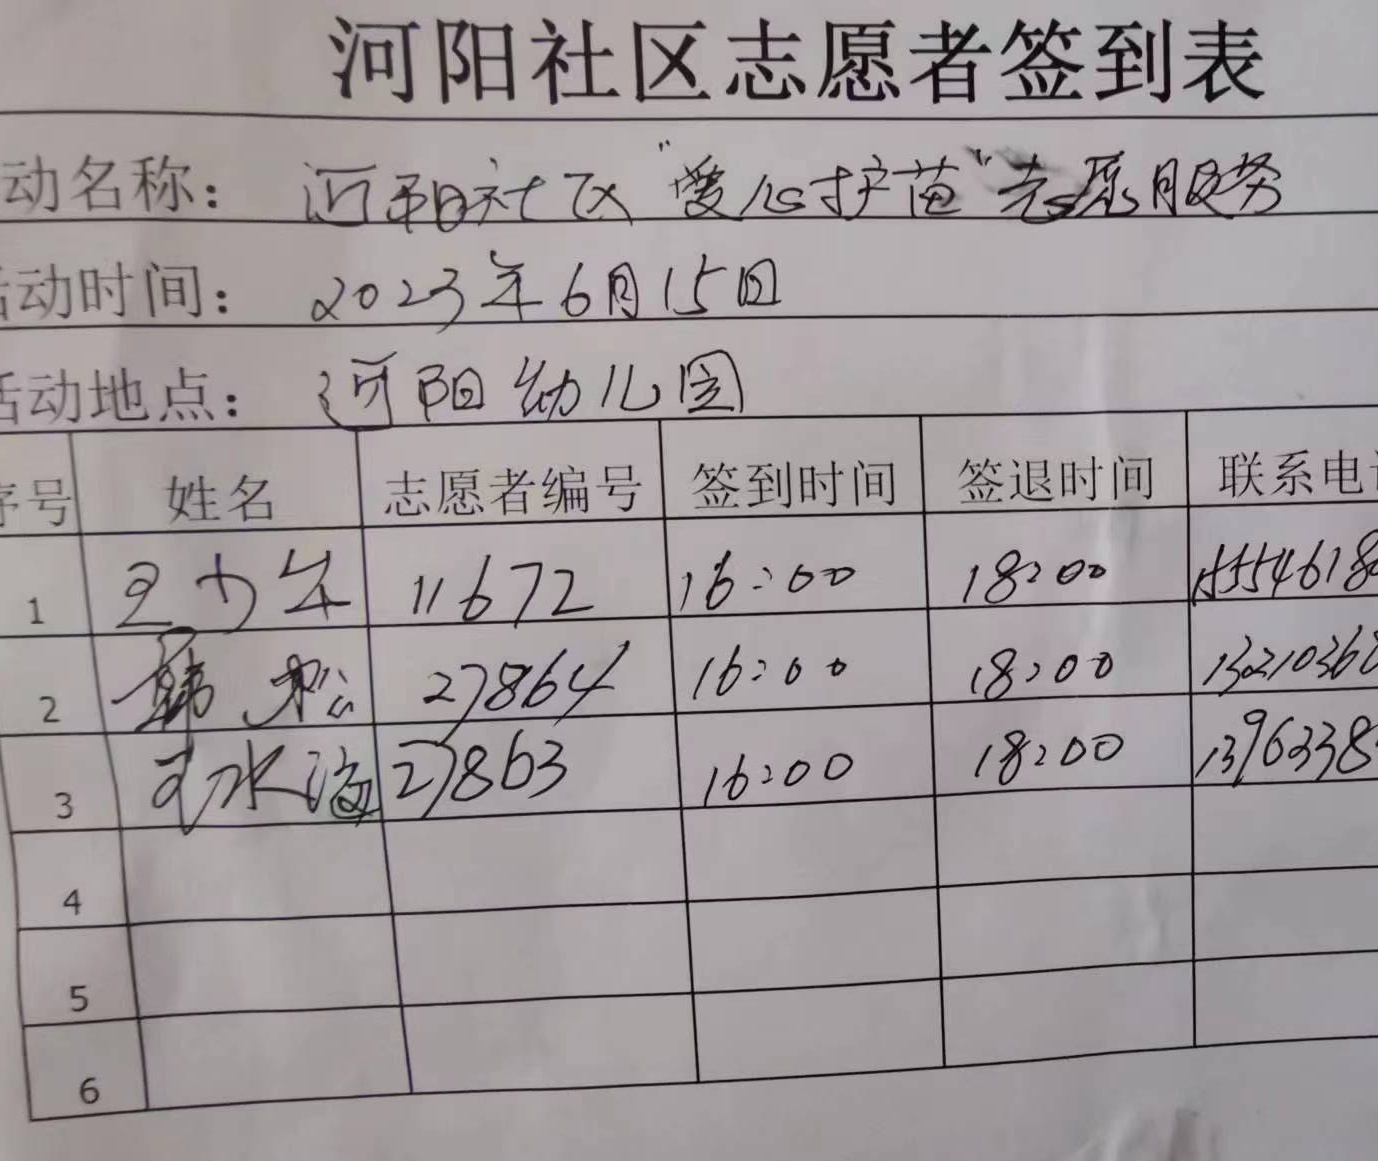 河阳社区志愿者签到表
动名称： 河阳社区“爱心护苗”志愿服务
活动时间： 2023年6月15日
活动地点： 河阳幼儿园
序号 姓名 志愿者编号 签到时间 签退时间 联系电
1 11672 16:00 18:00 15554618
2 韩松 27864 16:00 18:00 13210368
3 王水海 27863 16:00 18:00 13963385
4
5
6